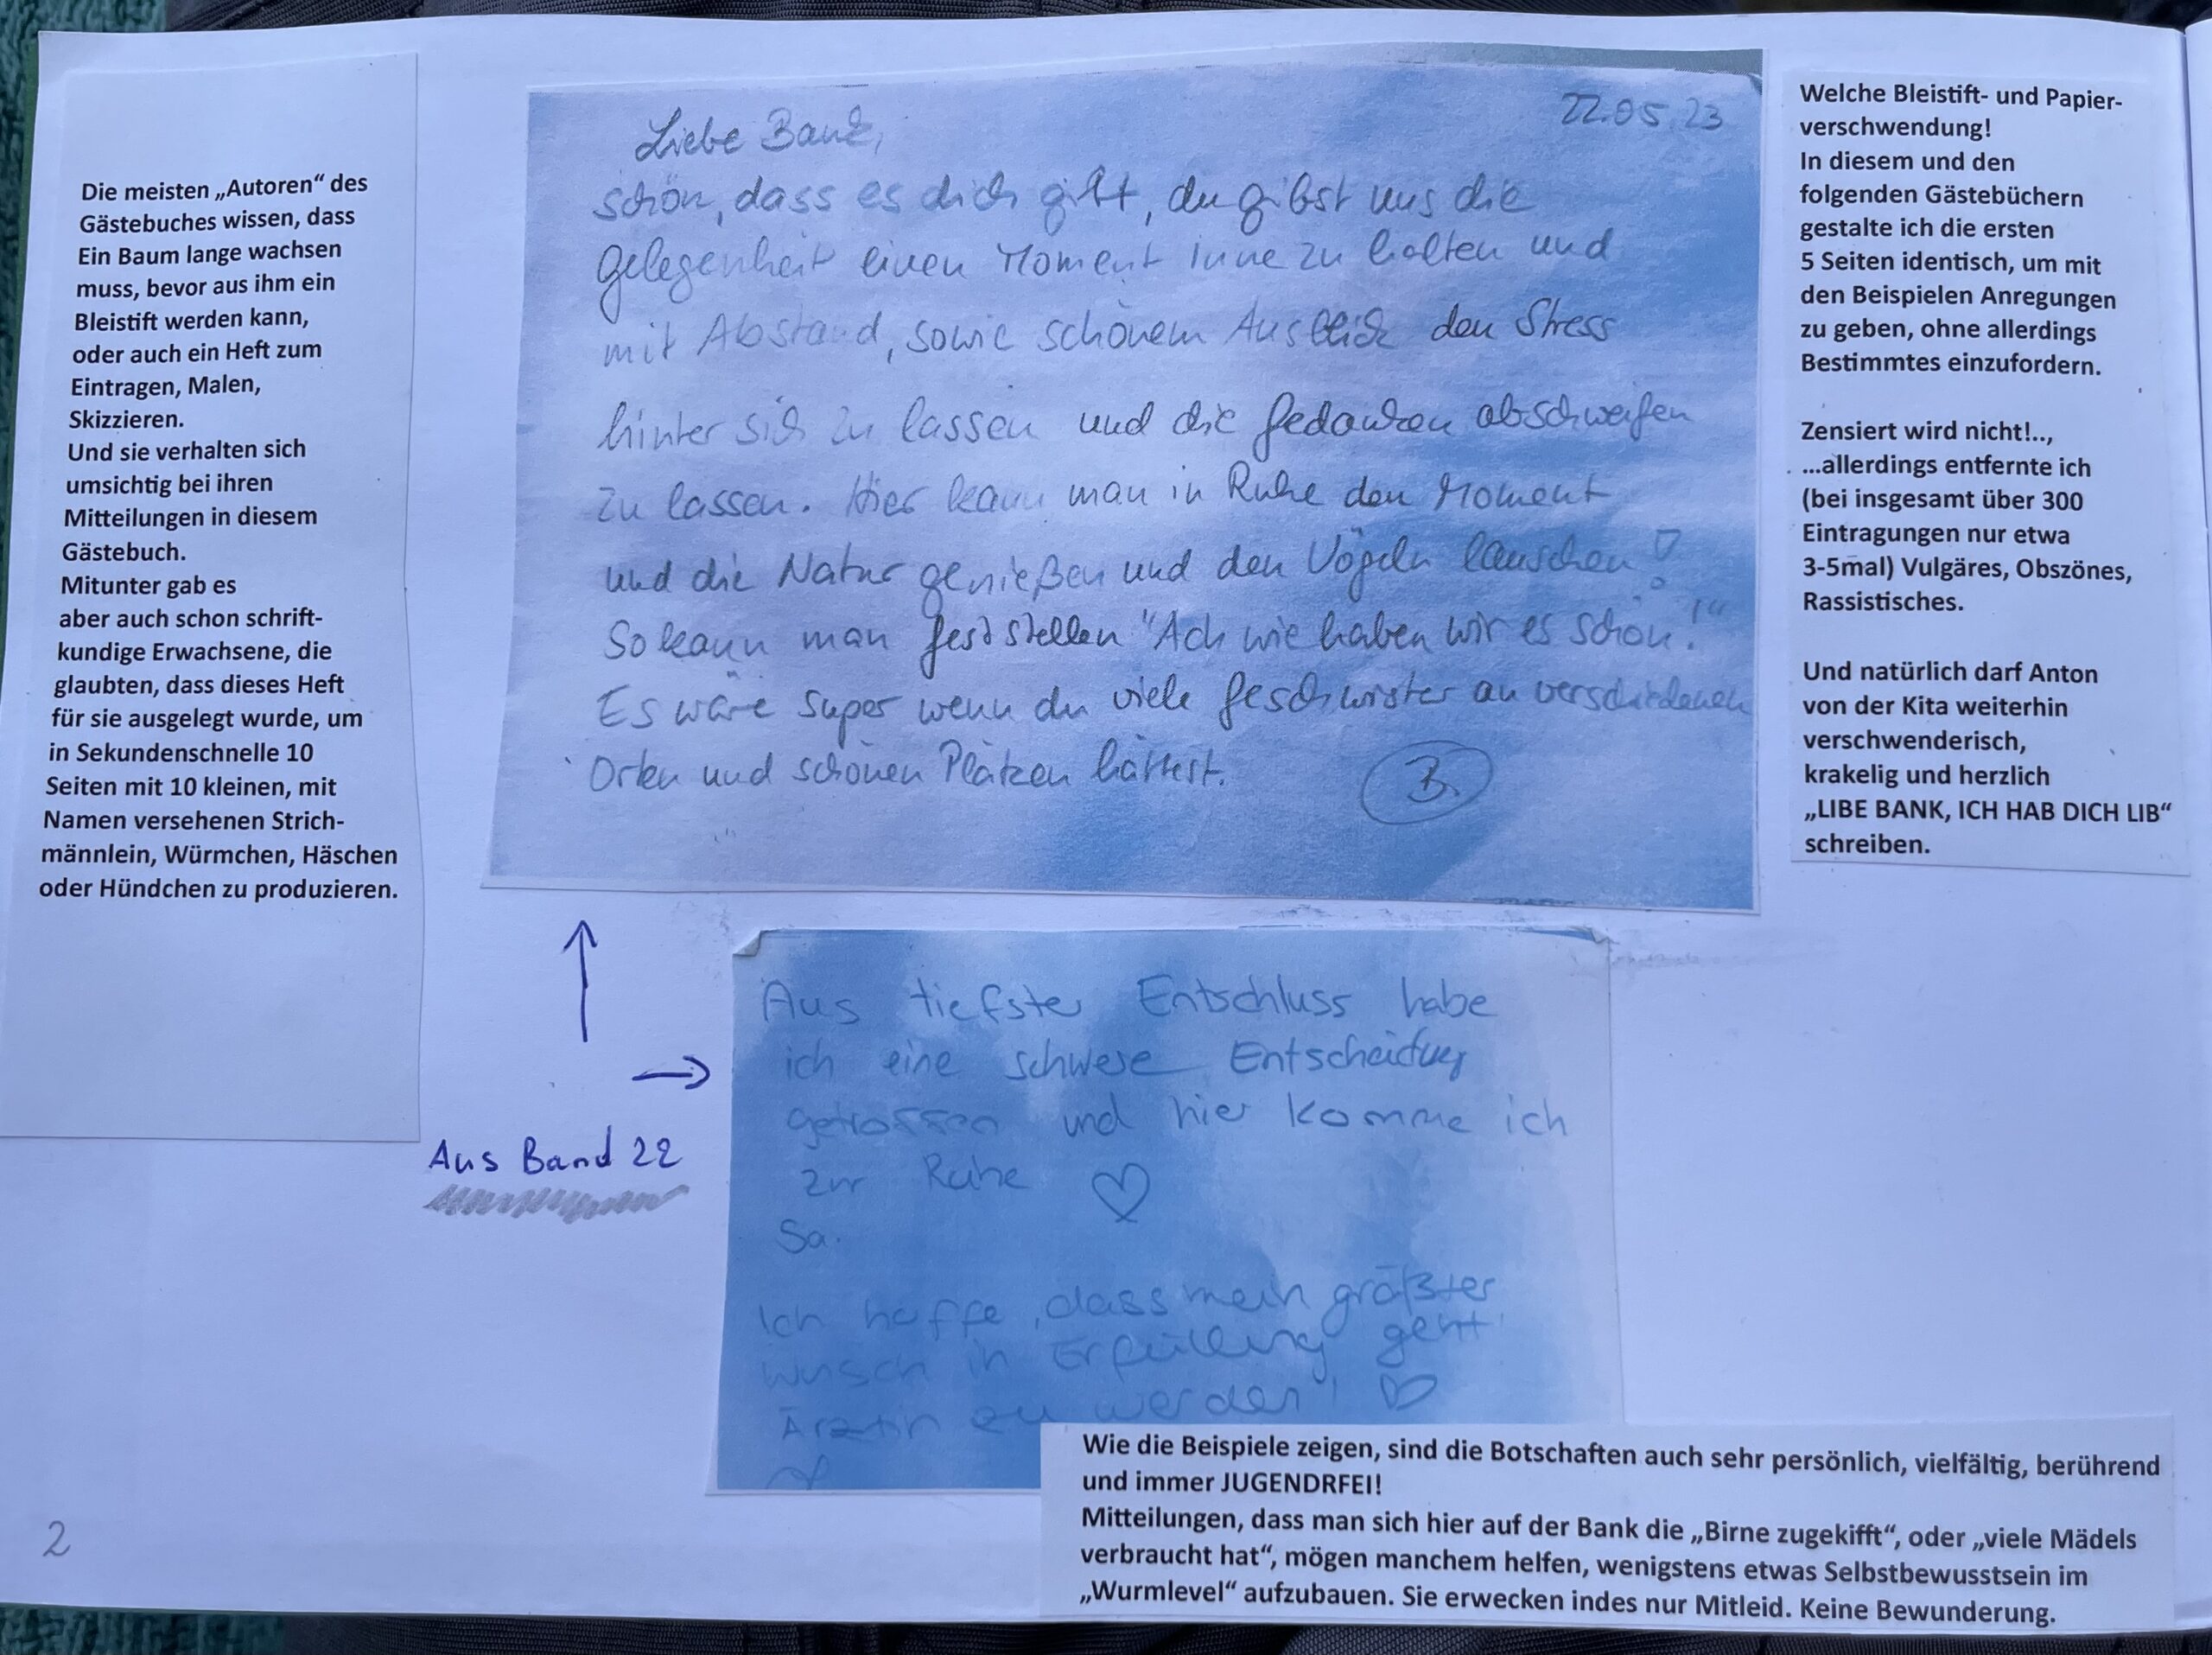 Die meisten „Autoren“ des
Gästebuches wissen, dass
Ein Baum lange wachsen
muss, bevor aus ihm ein
Bleistift werden kann,
oder auch ein Heft zum
Eintragen, Malen,
Skizzieren.
Und sie verhalten sich
umsichtig bei ihren
Mitteilungen in diesem
Gästebuch.
Mitunter gab es
aber auch schon schrift-
kundige Erwachsene, die
glaubten, dass dieses Heft
für sie ausgelegt wurde, um
in Sekundenschnelle 10
Seiten mit 10 kleinen, mit
Namen versehenen Strich-
männlein, Würmchen, Häschen
oder Hündchen zu produzieren.
22.05.23
Liebe Bank,
schön, dass es dich gibt, du gibst uns die
gelegenheit einen Moment inne zu halten und
mit Abstand, sowie schönem Ausblick den Stress
hinter sich zu lassen und die Gedanken abschweifen
zu lassen. Hier kann man in Ruhe den Moment
und die Natur genießen und den Vögeln lauschen!
So kann man feststellen "Ach wie haben wir es schön!"
Es wäre super wenn du viele Geschwister an verschiedenen
Orten und schönen Plätzen hättest.
B.
Welche Bleistift- und Papier-
verschwendung!
In diesem und den
folgenden Gästebüchern
gestalte ich die ersten
5 Seiten identisch, um mit
den Beispielen Anregungen
zu geben, ohne allerdings
Bestimmtes einzufordern.
Zensiert wird nicht!..,
...allerdings entfernte ich
(bei insgesamt über 300
Eintragungen nur etwa
3-5mal) Vulgäres, Obszönes,
Rassistisches.
Und natürlich darf Anton
von der Kita weiterhin
verschwenderisch,
krakelig und herzlich
„LIBE BANK, ICH HAB DICH LIB“
schreiben.
Aus Band 22
Aus tiefster Entschluss habe
ich eine schwere Entscheidung
getroffen und hier komme ich
zur Ruhe ♡
Sa.
Ich hoffe, dass mein größter
wunsch in Erfüllung geht
Ärztin zu werden! ♡
Wie die Beispiele zeigen, sind die Botschaften auch sehr persönlich, vielfältig, berührend
und immer JUGENDRFEI!
Mitteilungen, dass man sich hier auf der Bank die „Birne zugekifft“, oder „viele Mädels
verbraucht hat“, mögen manchem helfen, wenigstens etwas Selbstbewusstsein im
„Wurmlevel“ aufzubauen. Sie erwecken indes nur Mitleid. Keine Bewunderung.
2